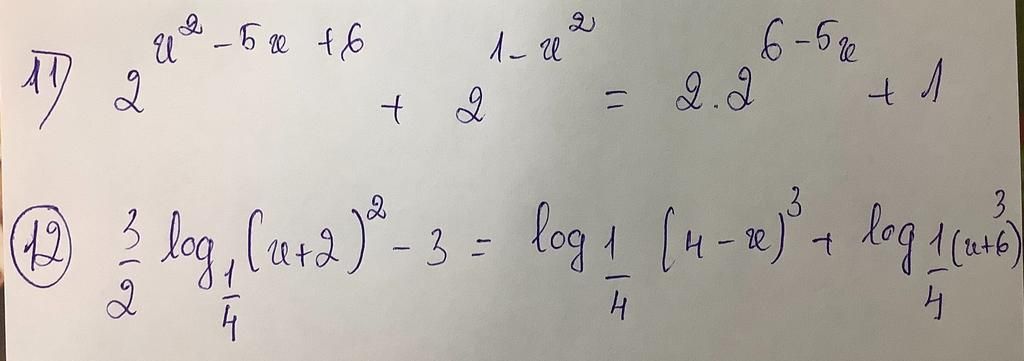 11) 2^{x^2 - 5x + 6} + 2^{1 - x^2} = 2 . 2^{6 - 5x} + 1
12 \frac{3}{2} log_{\frac{1}{4}} (x+2)^2 - 3 = log_{\frac{1}{4}} (4 - x)^3 + log_{\frac{1}{4}} (x+6)^3